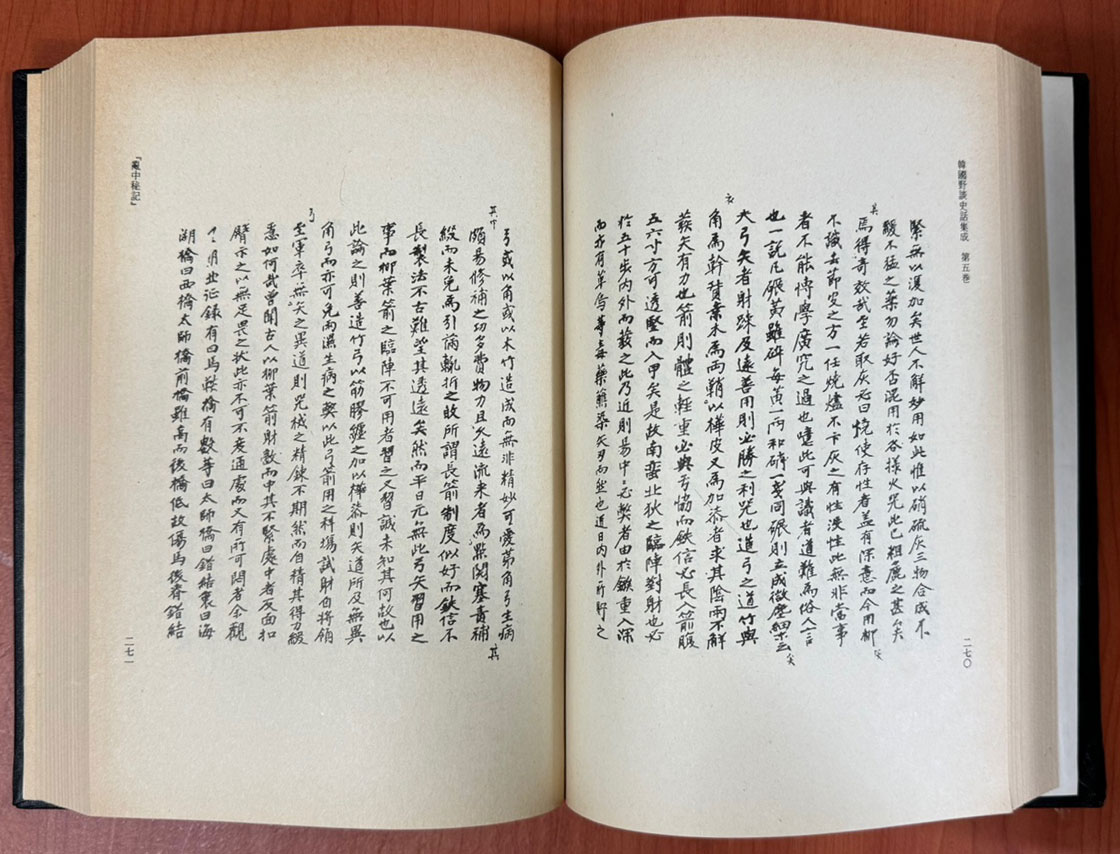 韓國野談史話集成 第五卷
緊無以復加矣世人不解妙用如此惟以硝硫灰三物合成不
駿不猛之藥勿論好否混用於各樣火咒此已粗麤之甚矣
焉得奇效哉至若取灰必曰燒使存性者盖有深意而今用柳
不識去節安之方一任燒爐不卞灰之有性沒性此無非當事
者不能博學廣究之過也嗟此可與識者道難為俗人言
也一說凡硫黃雖碎每黃一兩和磷一戔同碾則立成微塵細末云
大弓矢者財踈及遠善用則必勝之利咒也造弓之道竹與
角為幹贅桑木為兩鞘以樺皮又為加漆者求其陰雨不解
義矢有力也箭則體之輕重必與弓恊而鈇信必長入箭腹
五六寸方可透堅而入甲矣是故南蛮北狄之臨陣對財也必
於五十步內外而發之此乃近則易中中必獘者由於鏃重入深
而亦有草烏等毒藥薰染矢刃而然也近日內外所貯之
二七〇
「亂中秘記」
弓或以角或以木竹造成而無非精妙可愛第角弓生病
頗易修補之功多費物力且矢遠流来者為點閱塞責補
綴而未免為引滿輒折之敗所謂長箭制度似好而鈇信不
長製法不古難望其透遠矣然而平日元無此弓矢習用之
事而柳葉箭之臨陣不可用者習之又習誠未知其何故也以
此論之則善造竹弓以筋膠纏之加以樺漆則矢道所及無異
角弓而亦可免雨濕生病之獘以此弓箭用之科塲試財自將領
至軍卒無矢之異道則咒械之精鍊不期然而自精其得力緩
急如何哉曾聞古人以柳葉箭財數而中其不緊處中者反面扣
臂示之以無足畏之状此亦不可不度通處而又有所可問者余觀
月出征錄有曰馬鞍橋有數等曰太師橋曰錯結裹曰海
湖橋曰西橋太師橋前橋雖高而後橋低故傷馬後脊錯結
二七一